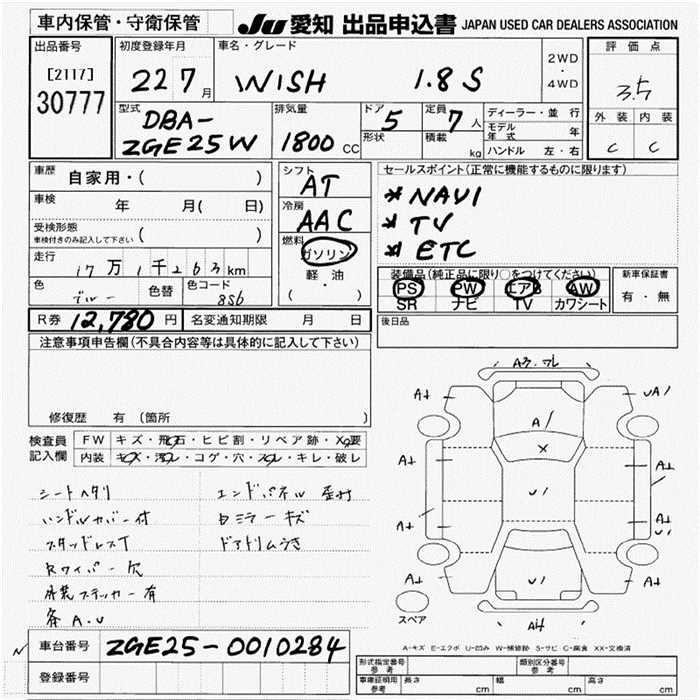 車内保管・守衛保管
JU 愛知 出品申込書 JAPAN USED CAR DEALERS ASSOCIATION
出品番号
[2117]
30777
初度登録年月
22 7 月
車名・グレード
WISH 1.8 S
2WD
・
4WD
評価点
3.5
外装 内装
C C
型式
DBA-
ZGE25W
排気量
1800 CC
ドア 5
形状
定員 7 人
積載 kg
ディーラー・並行
モデル年式 年
ハンドル 左・右
車歴 自家用・( )
車検 年 月( 日)
受検形態
車検付きのみ記入して下さい ( )
走行 17万1千263km
色 ブルー 色替 色コード 8S6
シフト AT
冷房 AAC
燃料
ガソリン
軽油
( ・ )
セールスポイント(正常に機能するものに限ります)
* NAVI
* TV
* ETC
装備品(純正品に限り○をつけてください)
PS PW エアB AW
SR ナビ TV カワシート
新車保証書
有・無
R券 12,780円 名変通知期限 月 日
後日品
注意事項申告欄(不具合内容等は具体的に記入して下さい)
修復歴 有 (箇所 )
検査員
記入欄
FW キズ・飛石・ヒビ割・リペア跡・X要
内装 キズ・汚れ・コゲ・穴・スレ・キレ・破レ
シートヘタリ
ハンドルカバー付
スタッドレスT
Rワイパー欠
外装ステッカー有
条 A.U
エンドパネル 歪み
ロミラーキズ
ドアトリムうき
A3.ワレ
A1
X
U1
U1
A4
スペア
A-キズ E-エクボ U-凹み W-補修跡 S-サビ C-腐食 XX-交換済
車台番号 ZGE25-0010284
登録番号
形式指定番号
参考
類別区分番号
参考
車庫証明用
参考
長さ cm 幅 cm 高さ cm